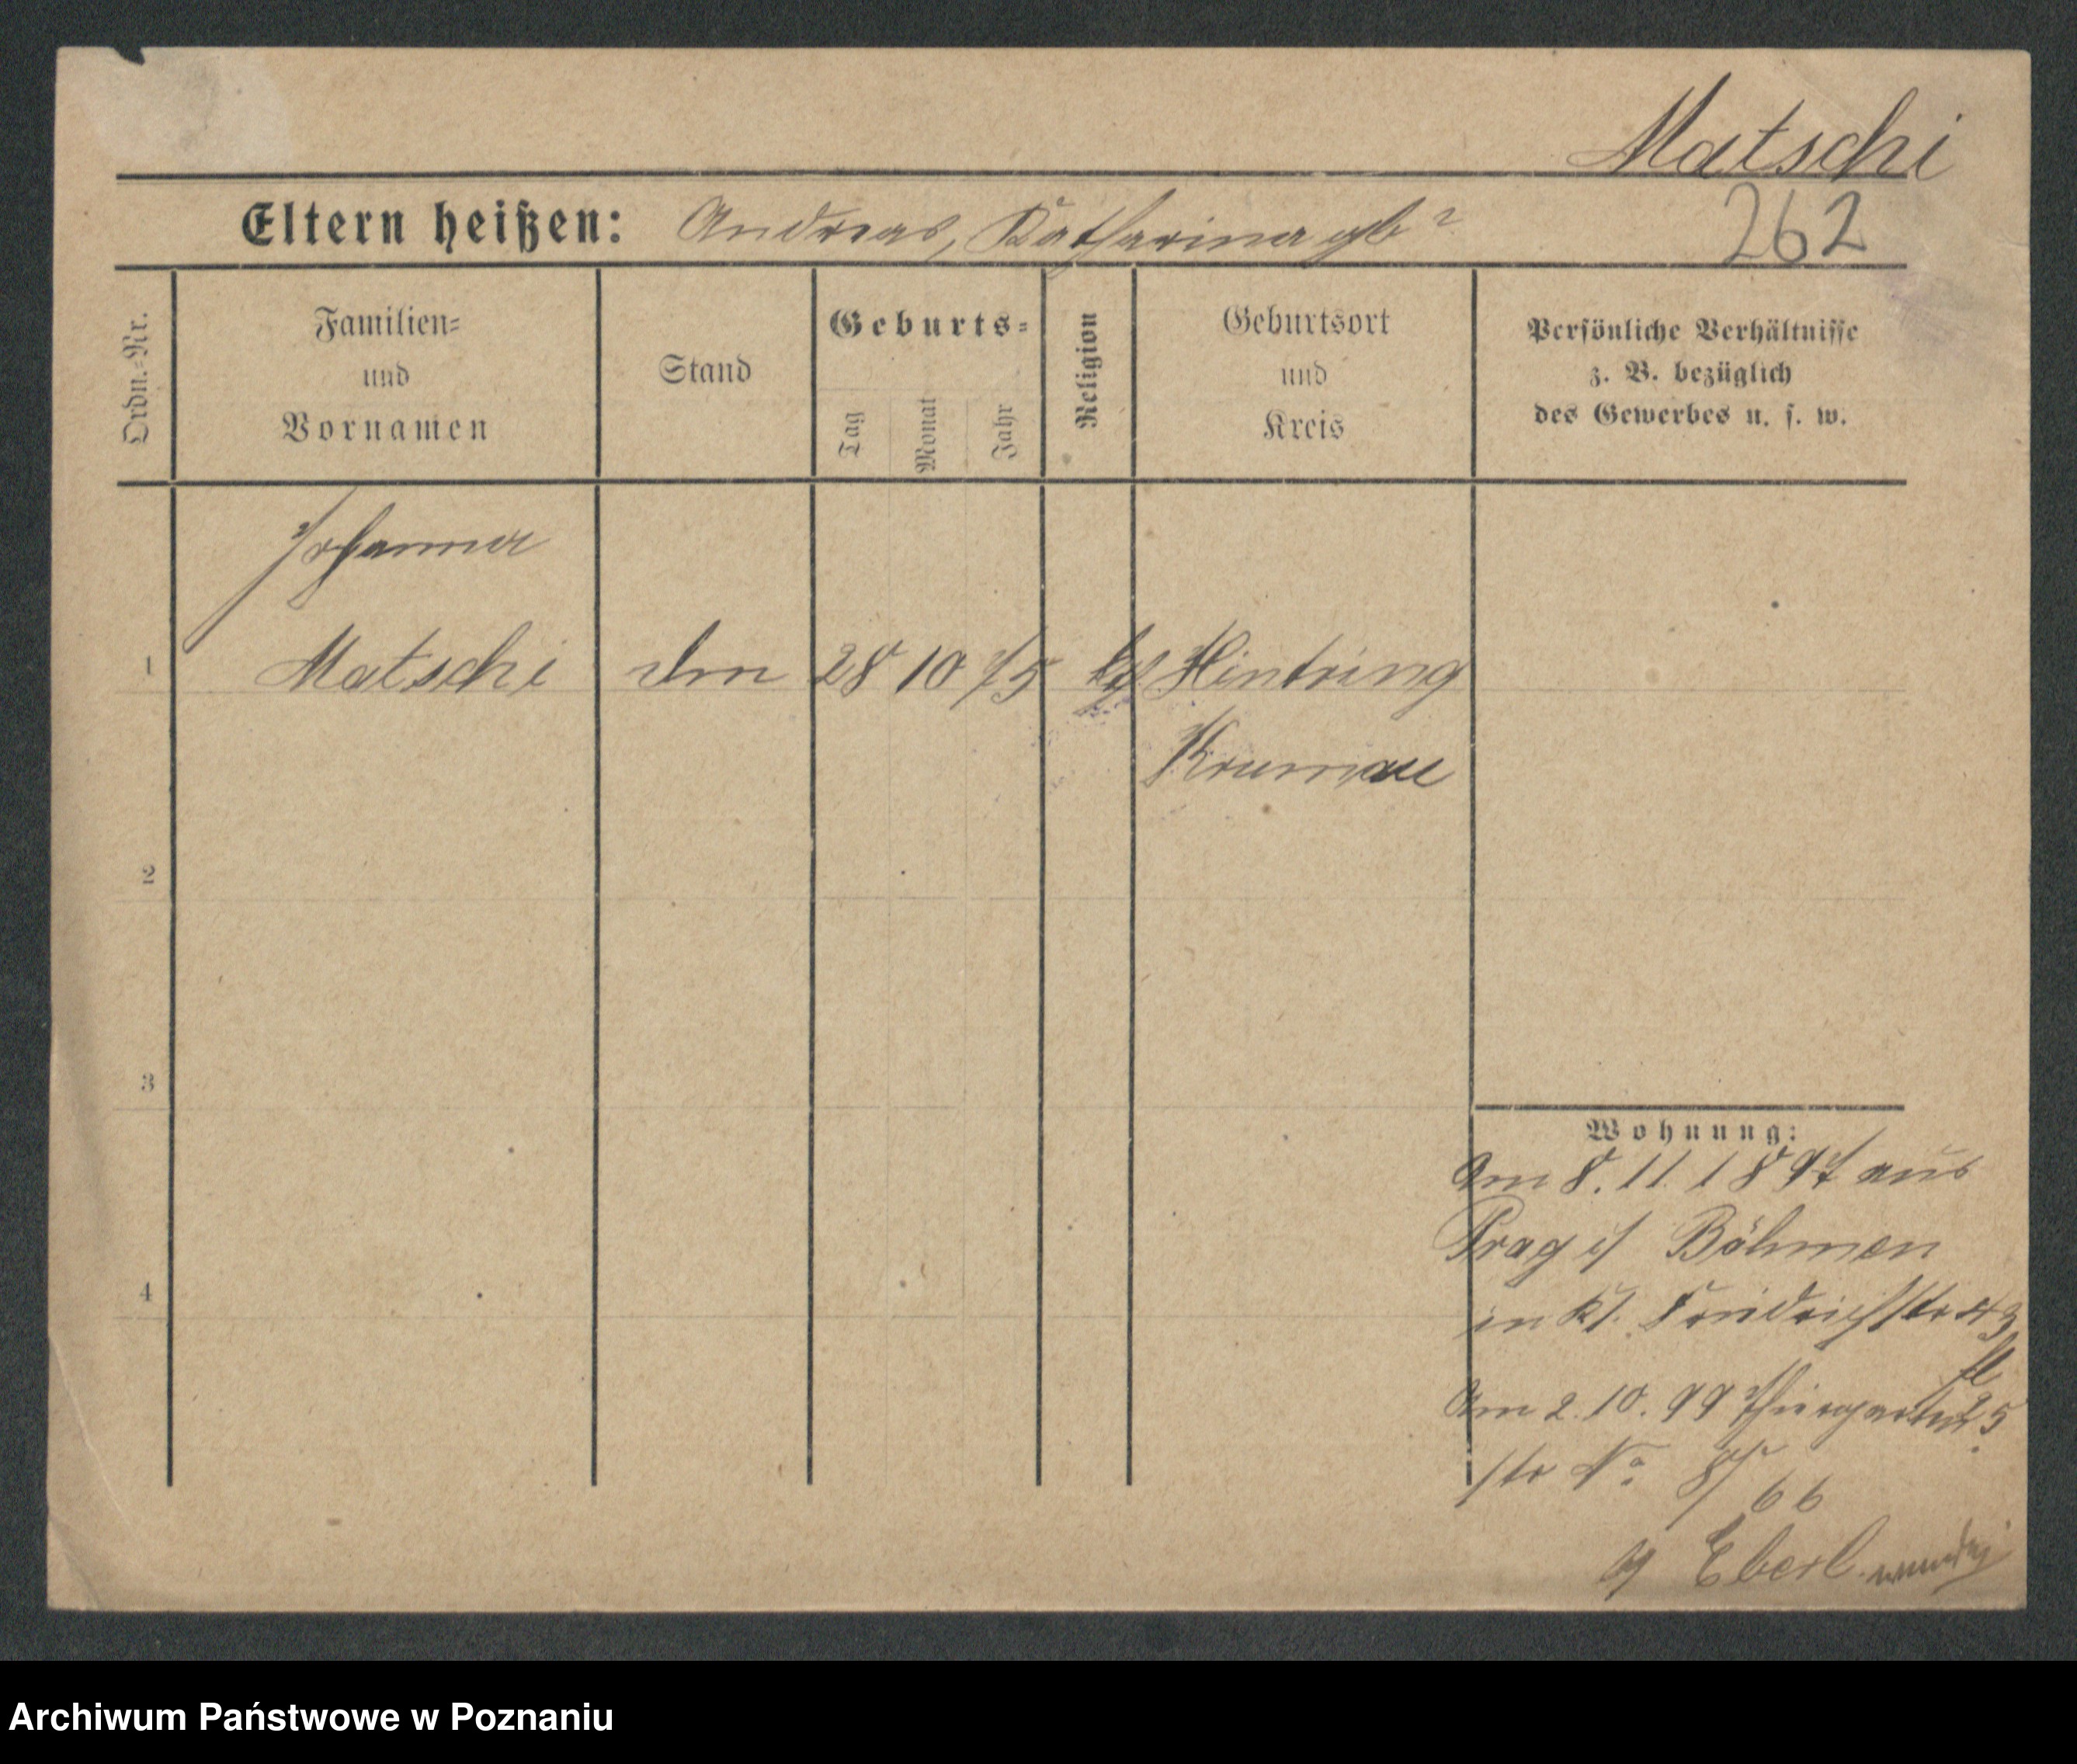 Matschi
Eltern heißen: Andreas, Katharina gb ?
262
Ordn.=Nr.
Familien=
und
Vornamen
Stand
Geburts=
Tag
Monat
Jahr
Religion
Geburtsort
und
Kreis
Persönliche Verhältnisse
z. B. bezüglich
des Gewerbes u. s. w.
Johanna
1 Matschi 28 10 75 Hintring
Krumau
2
3
4
Wohnung:
Am 8. 11. 1897 aus
Prag i/ Böhmen
in Kl.
Am 2. 10. 99 Thiergarten
str No 8/
66
Eberl
Archiwum Państwowe w Poznaniu